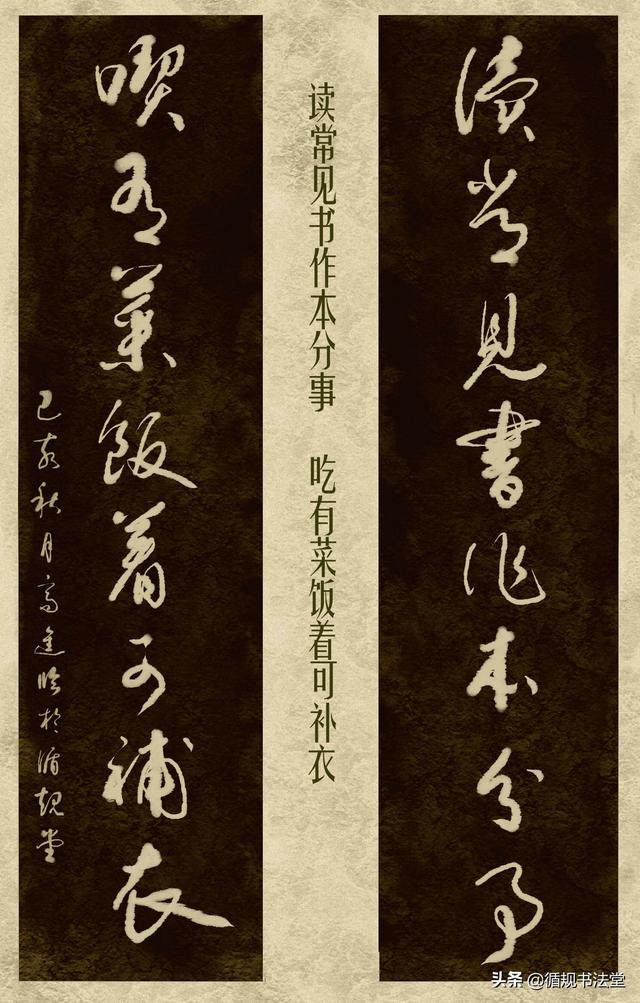 讀常見書作本分事
读常见书作本分事 吃有菜饭着可补衣
喫有菜飯着可補衣
己亥秋月高進臨於循規堂
头条 @循规书法堂